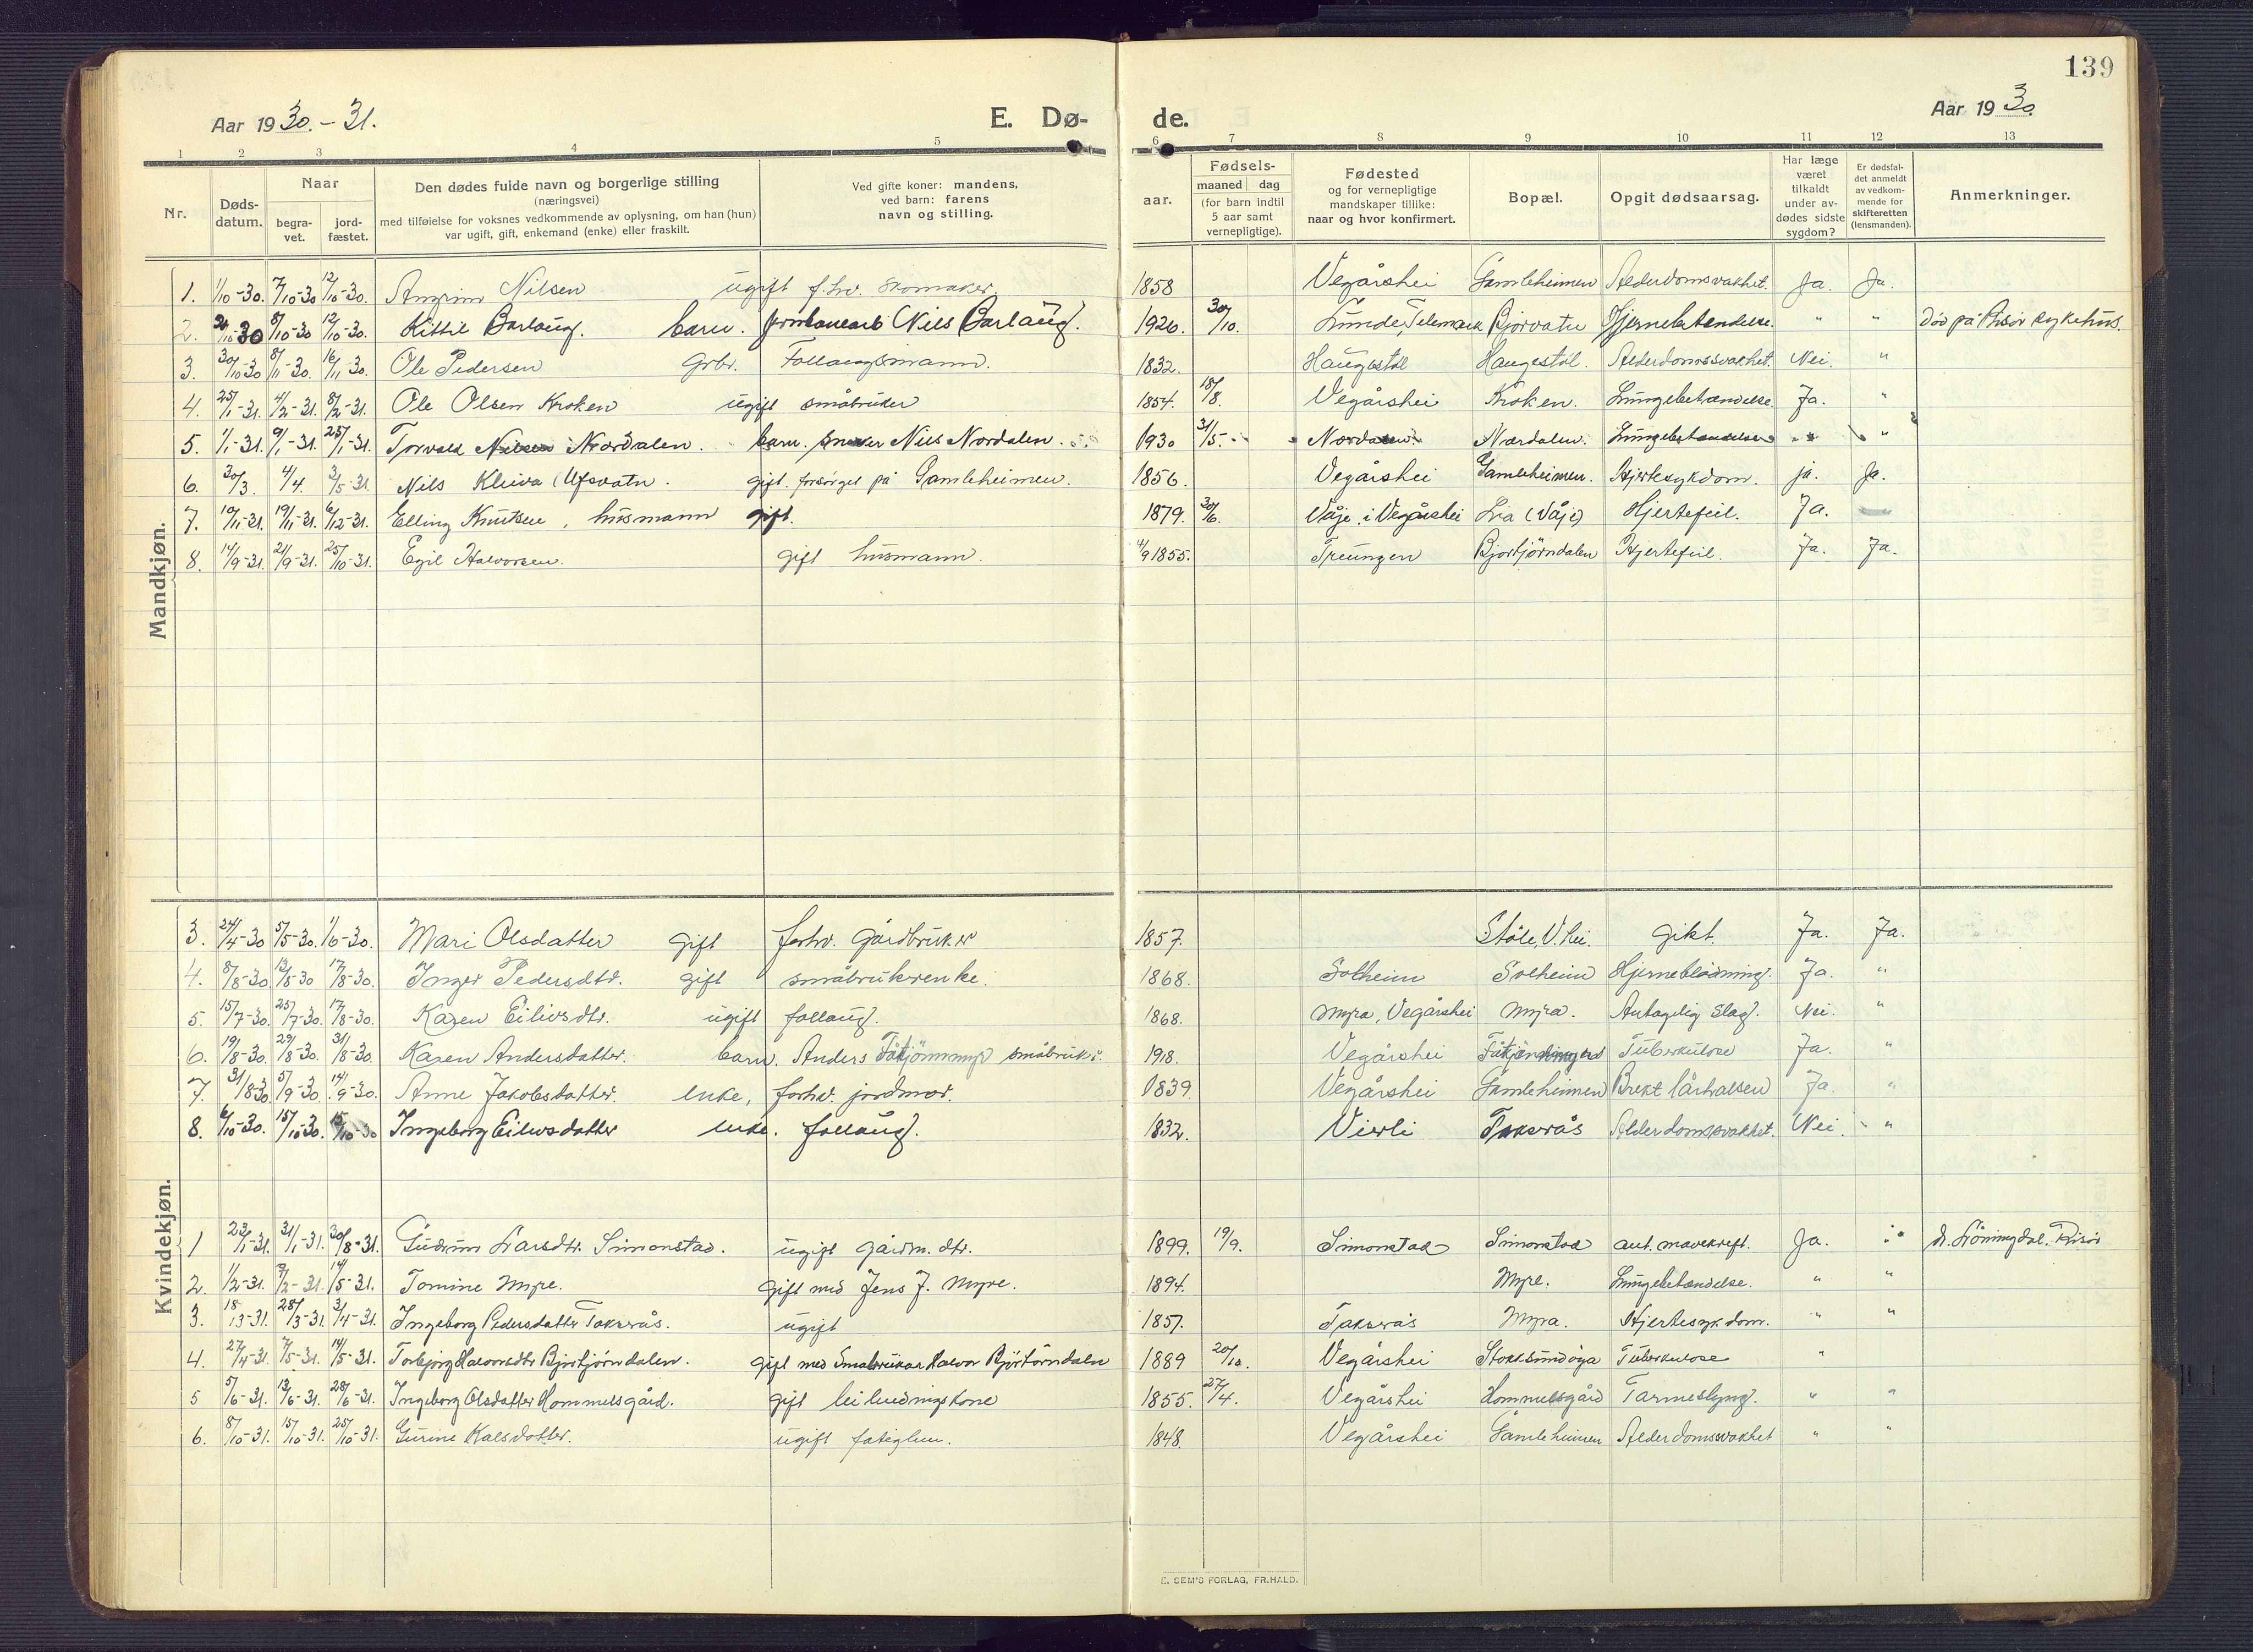 139
Aar 1930.-31.
E. Dø-
de.
Aar 1930.
1 2 3 4 5 6 7 8 9 10 11 12 13
Nr.
Døds-
datum.
Naar
begra-
vet.
jord-
fæstet.
Den dødes fulde navn og borgerlige stilling
(næringsvei)
med tilføielse for voksnes vedkommende av oplysning, om han (hun)
var ugift, gift, enkemand (enke) eller fraskilt.
Ved gifte koner: mandens,
ved barn: farens
navn og stilling.
aar.
Fødsels-
maaned dag
(for barn indtil
5 aar samt
vernepligtige).
Fødested
og for vernepligtige
mandskaper tillike:
naar og hvor konfirmert.
Bopæl.
Opgit dødsaarsag.
Har læge
været
tilkaldt
under av-
dødes sidste
sygdom?
Er dødsfal-
det anmeldt
av vedkom-
mende for
skifteretten
(lensmanden).
Anmerkninger.
Mandkjøn.
1. 1/10-30. 7/10-30 12/10-30. Nilsen ugift f.hv. skomaker. 1858 Vegårshei Gamleheimen Alderdomsvakhet. Ja. Ja.
2. 8/10-30 12/10-30. Kittil Barlaug. barn. Nils Barlaug. 1926. 30/10. Lunde, Telemark Bjorvatn Hjernebetendelse. " " Død på Risør sykehus.
3. 30/10-30 8/11-30. 16/11-30. Ole Pedersen Grbr. Follaugsmann. 1832. Haugestøl Haugestøl. Alderdomssvakhet. Nei. "
4. 25/1-31. 4/2-31. 8/2-31. Ole Olsen Kroken ugift småbruker 1854. 18/8. Vegårshei Kroken. Lungebetændelse. Ja. "
5. 1/1-31. 9/1-31. 25/1-31. Torvald Nordalen. barn. Nils Nordalen. 1930 31/5. Nordalen. Nordalen. Lungebetændelse " "
6. 30/3. 4/4. 3/5-31. Nils Kleiva (Ufsvatn. gift. forsørget på Gamleheimen. 1856. Vegårshei Gamleheimen. Hjertesykdom. ja. Ja.
7. 10/11-31. 19/11-31. 6/12-31. Elling Knutsen, husmann gift. 1879. 30/6. Våje, i Vegårshei Lia (Våje) Hjertefeil. Ja.
8. 14/9-31. 21/9-31. 25/10-31. Egil Halvorsen. gift husmann. 4/9 1855. Treungen Bjortjørndalen Hjertefeil. Ja. Ja.
Kvindekjøn.
3. 24/4-30 5/5-30. 1/6-30. Mari Olsdatter gift forhv. Gårdbruker 1857. Støle, V.hei. gikt. Ja. Ja.
4. 8/8-30 13/8-30 17/8-30. Inger Pedersdtr. gift småbrukerenke. 1868. Solheim Solheim Hjerneblødning. Ja. "
5. 15/7-30. 25/7-30. 17/8-30. Karen Eilivsdtr. ugift follaug. 1868. Myra, Vegårshei Myra. Antagelig Slag. Nei. "
6. 19/8-30. 29/8-30. 31/8-30. Karen Andersdatter. barn. Anders småbruker. 1918. Vegårshei Tuberkulose Ja. "
7. 31/8-30 5/9-30. 14/9-30. Anne Jakobsdatter. enke, forhv. jordmor. 1839. Vegårshei Gamleheimen Brekt lårhalsen Ja. "
8. 6/10-30. 15/10-30. Ingeborg Eilivsdatter enke. follaug. 1832. Vierli Takserås Alderdomssvakhet. Nei. "
1 23/1-31. 31/1-31. 30/8-31. Gudrun Larsdtr. Simonstad. ugift gårdm. dtr. 1899. 19/9. Simonstad Simonstad ant. mavekreft. Ja. " Risør
2. 1/2-31. 9/2-31. 14/5-31. Tomine Myre. gift med Jens J. Myre. 1894. Myre. Lungebetændelse. " "
3. 18/3-31. 28/3-31. 3/4-31. Ingeborg Pedersdatter Takserås. ugift 1857. Takserås Myra. Hjertesykdom. " "
4. 27/4-31. 7/5-31. 14/5-31. Torbjørg Halvorsdtr Bjortjørndalen. gift med Småbruker Halvor Bjortørndalen 1889 20/10. Vegårshei Stokksundøya Tuberkulose "
5 5/6-31. 13/6-31. 28/6-31. Ingeborg Olsdatter Hommelsgård. gift leilendingskone 1855. 27/4. Vegårshei Hommelsgård Tarmeslyng. " "
6. 8/10-31. 15/10-31. 25/10-31. Gurine Kalsdatter. ugift fatiglem. 1848. Vegårshei Gamleheimen Alderdomssvakhet " "
E. SEM'S FORLAG, FR.HALD.